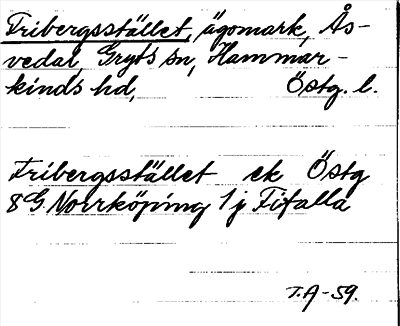 Fribergsstället, ägomark, Ås-
vedal, Gryts sn, Hammar-
kinds hd, Östg. l.
Fribergsstället ek Östg
8G Norrköping 1j Fifalla
T.A-59.